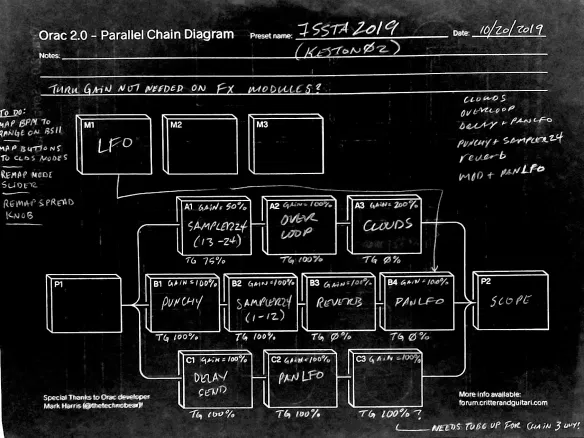 Orac 2.0 – Parallel Chain Diagram Preset name: ISSTA 2019 Date: 10/20/2019
(KESTON02)
Notes:
THRU GAIN NOT NEEDED ON FX MODULES?
TO DO:
MAP BPM TO
RANGE ON BSII
MAP BUTTONS
TO CLDS NODES
REMAP MODE
SLIDER
REMAP SPREAD
KNOB
M1
LFO
M2
M3
CLOUDS
OVERLOOP
DELAY + PANLFO
PUNCHY + SAMPLER24
reverb
MOD + PANLFO
A1 GAIN=50%
SAMPLER24
(13-24)
TG 75%
A2 GAIN=100%
OVER
LOOP
TG 100%
A3 GAIN=200%
CLOUDS
TG 0%
P1
B1 GAIN=100%
PUNCHY
TG 100%
B2 GAIN=100%
SAMPLER24
(1-12)
TG 100%
B3 GAIN=100%
REVERB
TG 0%
B4 GAIN=100%
PANLFO
TG 0%
P2
SCOPE
C1 GAIN=100%
DELAY
SEND
TG 100%
C2 GAIN=100%
PANLFO
TG 100%
C3 GAIN=100%
TG 100%?
NEEDS TO BE UP FOR CHAIN 3 ONLY!
Special Thanks to Orac developer
Mark Harris (@thetechnobear)!
More info available:
forum.critterandguitari.com